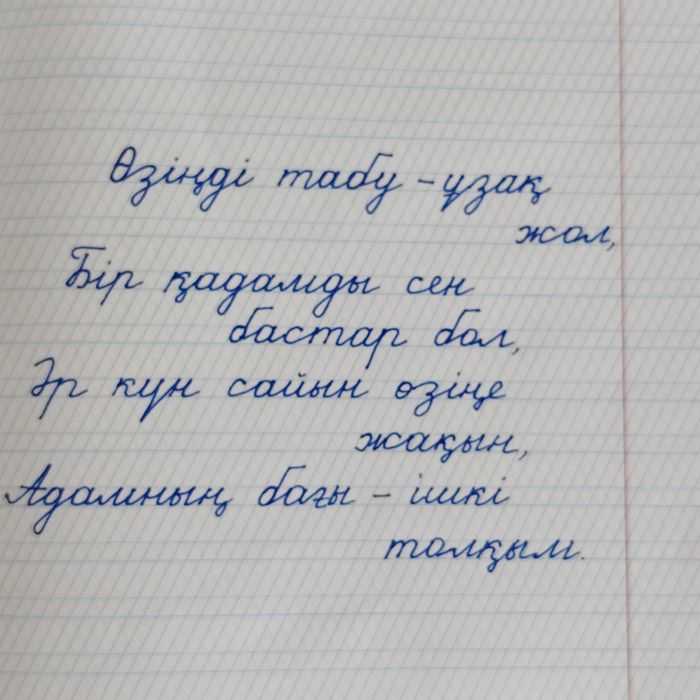 Өзіңді табу – ұзақ
жол,
Бір қадамды сен
бастар бол,
Әр күн сайын өзіңе
жақын,
Адамның бағы – ішкі
толқым.